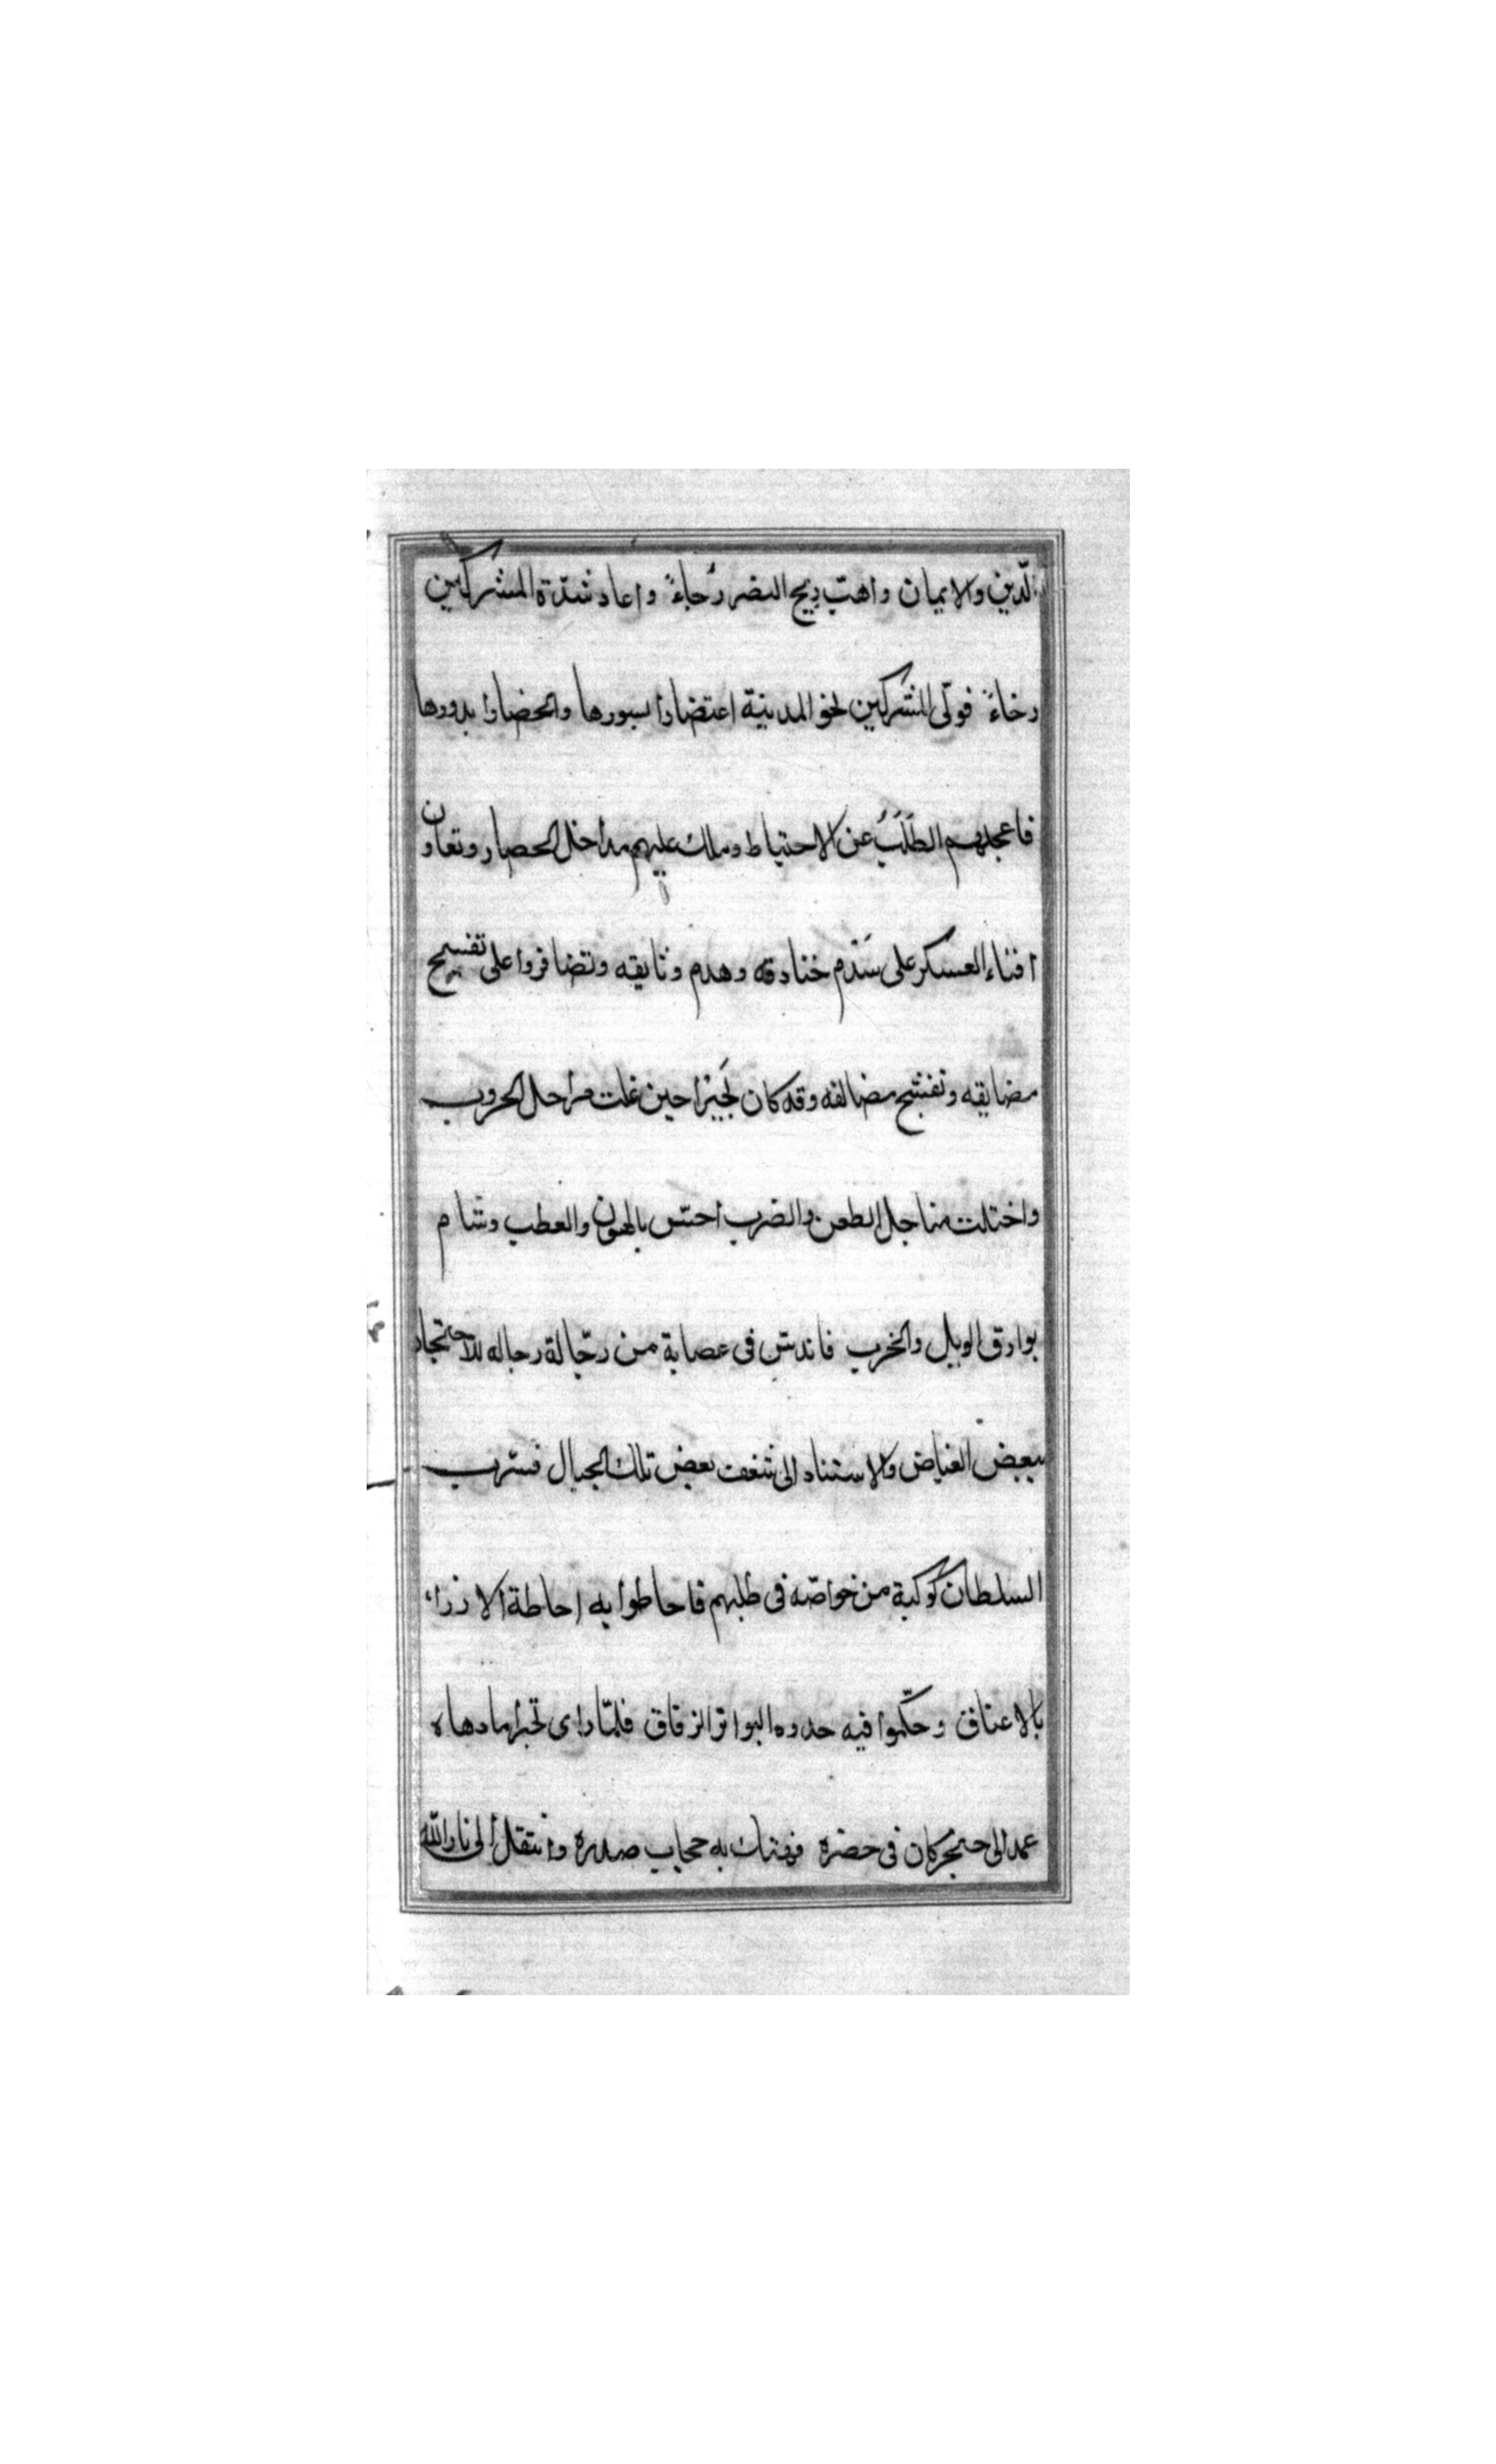 الدّين والايمان واهبّ ريح النصر رُخاءً واعاد شدّة المشركين
رخاءً فولّى المشركين نحو المدينة اعتضادا بسورها وانحصارا بدورها
فاعجلهم الطَلَبُ عن الاحتياط وملك عليهم مداخل الحصار وتعاون
افناء العسكر على سَدْم خنادقه وهدم وثايقه وتضافروا على تفسيح
مضايقه وتفتيح مغالقه وقد كان بَجَيْرا حين غلت مراجل الحروب
واختلت مناجل الطعن والضرب احسّ بالهون والعطب وشام
بوارق الويل والخرب فاندسّ فى عصابة من رجّالة رجاله للاحتجاز
ببعض الغياض والاستناد الى شعف بعض تلك الجبال فسرّب
السلطان كوكبة من خواصّه فى طلبهم فاحاطوا به احاطة الازرار
بالاعناق وحكّموا فيه حدود البواتر الرقاق فلمّا راى بجيرا ما دهاه
عمد الى خنجر كان فى خصره فهتك به حجاب صدره وانتقل الى نار الله